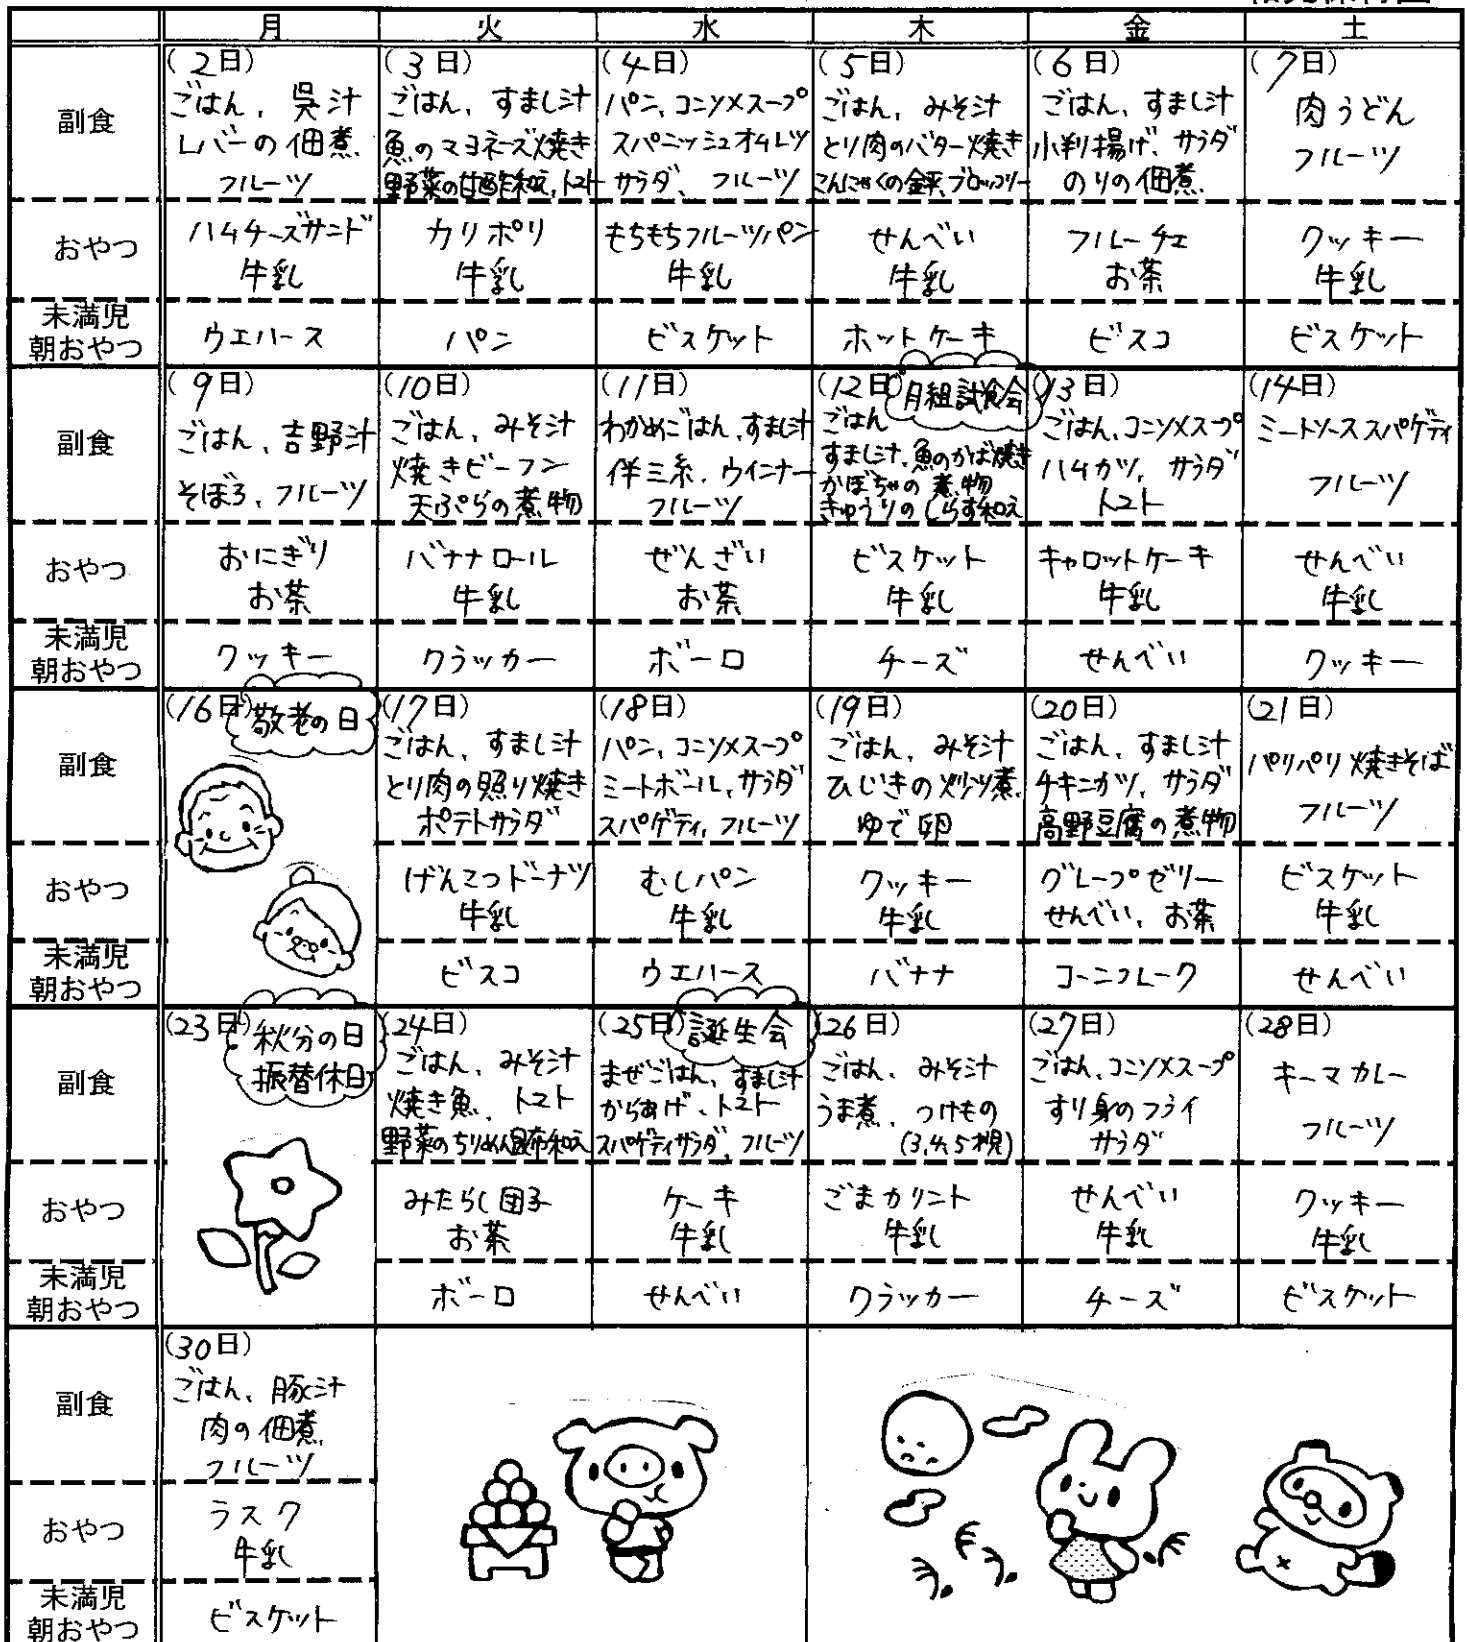 月 火 水 木 金 土
副食
(2日)
ごはん、呉汁
レバーの佃煮
フルーツ
(3日)
ごはん、すまし汁
魚のマヨネーズ焼き
野菜の甘酢和え、トマト
(4日)
パン、コンソメスープ
スパニッシュオムレツ
サラダ、フルーツ
(5日)
ごはん、みそ汁
とり肉のバター焼き
こんにゃくの金平、ブロッコリー
(6日)
ごはん、すまし汁
小判揚げ、サラダ
のりの佃煮
(7日)
肉うどん
フルーツ
おやつ
ハムチーズサンド
牛乳
カリポリ
牛乳
もちもちフルーツパン
牛乳
せんべい
牛乳
フルーチェ
お茶
クッキー
牛乳
未満児
朝おやつ
ウエハース
パン
ビスケット
ホットケーキ
ビスコ
ビスケット
副食
(9日)
ごはん、吉野汁
そぼろ、フルーツ
(10日)
ごはん、みそ汁
焼きビーフン
天ぷらの煮物
(11日)
わかめごはん、すまし汁
伴三糸、ウインナー
フルーツ
(12日)
月組試食会
ごはん
すまし汁、魚のかば焼き
かぼちゃの煮物
きゅうりのしらす和え
(13日)
ごはん、コンソメスープ
ハムカツ、サラダ
トマト
(14日)
ミートソーススパゲティ
フルーツ
おやつ
おにぎり
お茶
バナナロール
牛乳
ぜんざい
お茶
ビスケット
牛乳
キャロットケーキ
牛乳
せんべい
牛乳
未満児
朝おやつ
クッキー
クラッカー
ボーロ
チーズ
せんべい
クッキー
副食
(16日)
敬老の日
(17日)
ごはん、すまし汁
とり肉の照り焼き
ポテトサラダ
(18日)
パン、コンソメスープ
ミートボール、サラダ
スパゲティ、フルーツ
(19日)
ごはん、みそ汁
ひじきの炒り煮
ゆで卵
(20日)
ごはん、すまし汁
チキンカツ、サラダ
高野豆腐の煮物
(21日)
パリパリ焼きそば
フルーツ
おやつ
げんこつドーナツ
牛乳
むしパン
牛乳
クッキー
牛乳
グレープゼリー
せんべい、お茶
ビスケット
牛乳
未満児
朝おやつ
ビスコ
ウエハース
バナナ
コーンフレーク
せんべい
副食
(23日)
秋分の日
振替休日
(24日)
ごはん、みそ汁
焼き魚、トマト
野菜のちりめん昆布和え
(25日)
誕生会
まぜごはん、すまし汁
からあげ、トマト
スパゲティサラダ、フルーツ
(26日)
ごはん、みそ汁
うま煮、つけもの
(3.4.5才児)
(27日)
ごはん、コンソメスープ
すり身のフライ
サラダ
(28日)
キーマカレー
フルーツ
おやつ
みたらし団子
お茶
ケーキ
牛乳
ごまカリント
牛乳
せんべい
牛乳
クッキー
牛乳
未満児
朝おやつ
ボーロ
せんべい
クラッカー
チーズ
ビスケット
副食
(30日)
ごはん、豚汁
肉の佃煮
フルーツ
おやつ
ラスク
牛乳
未満児
朝おやつ
ビスケット